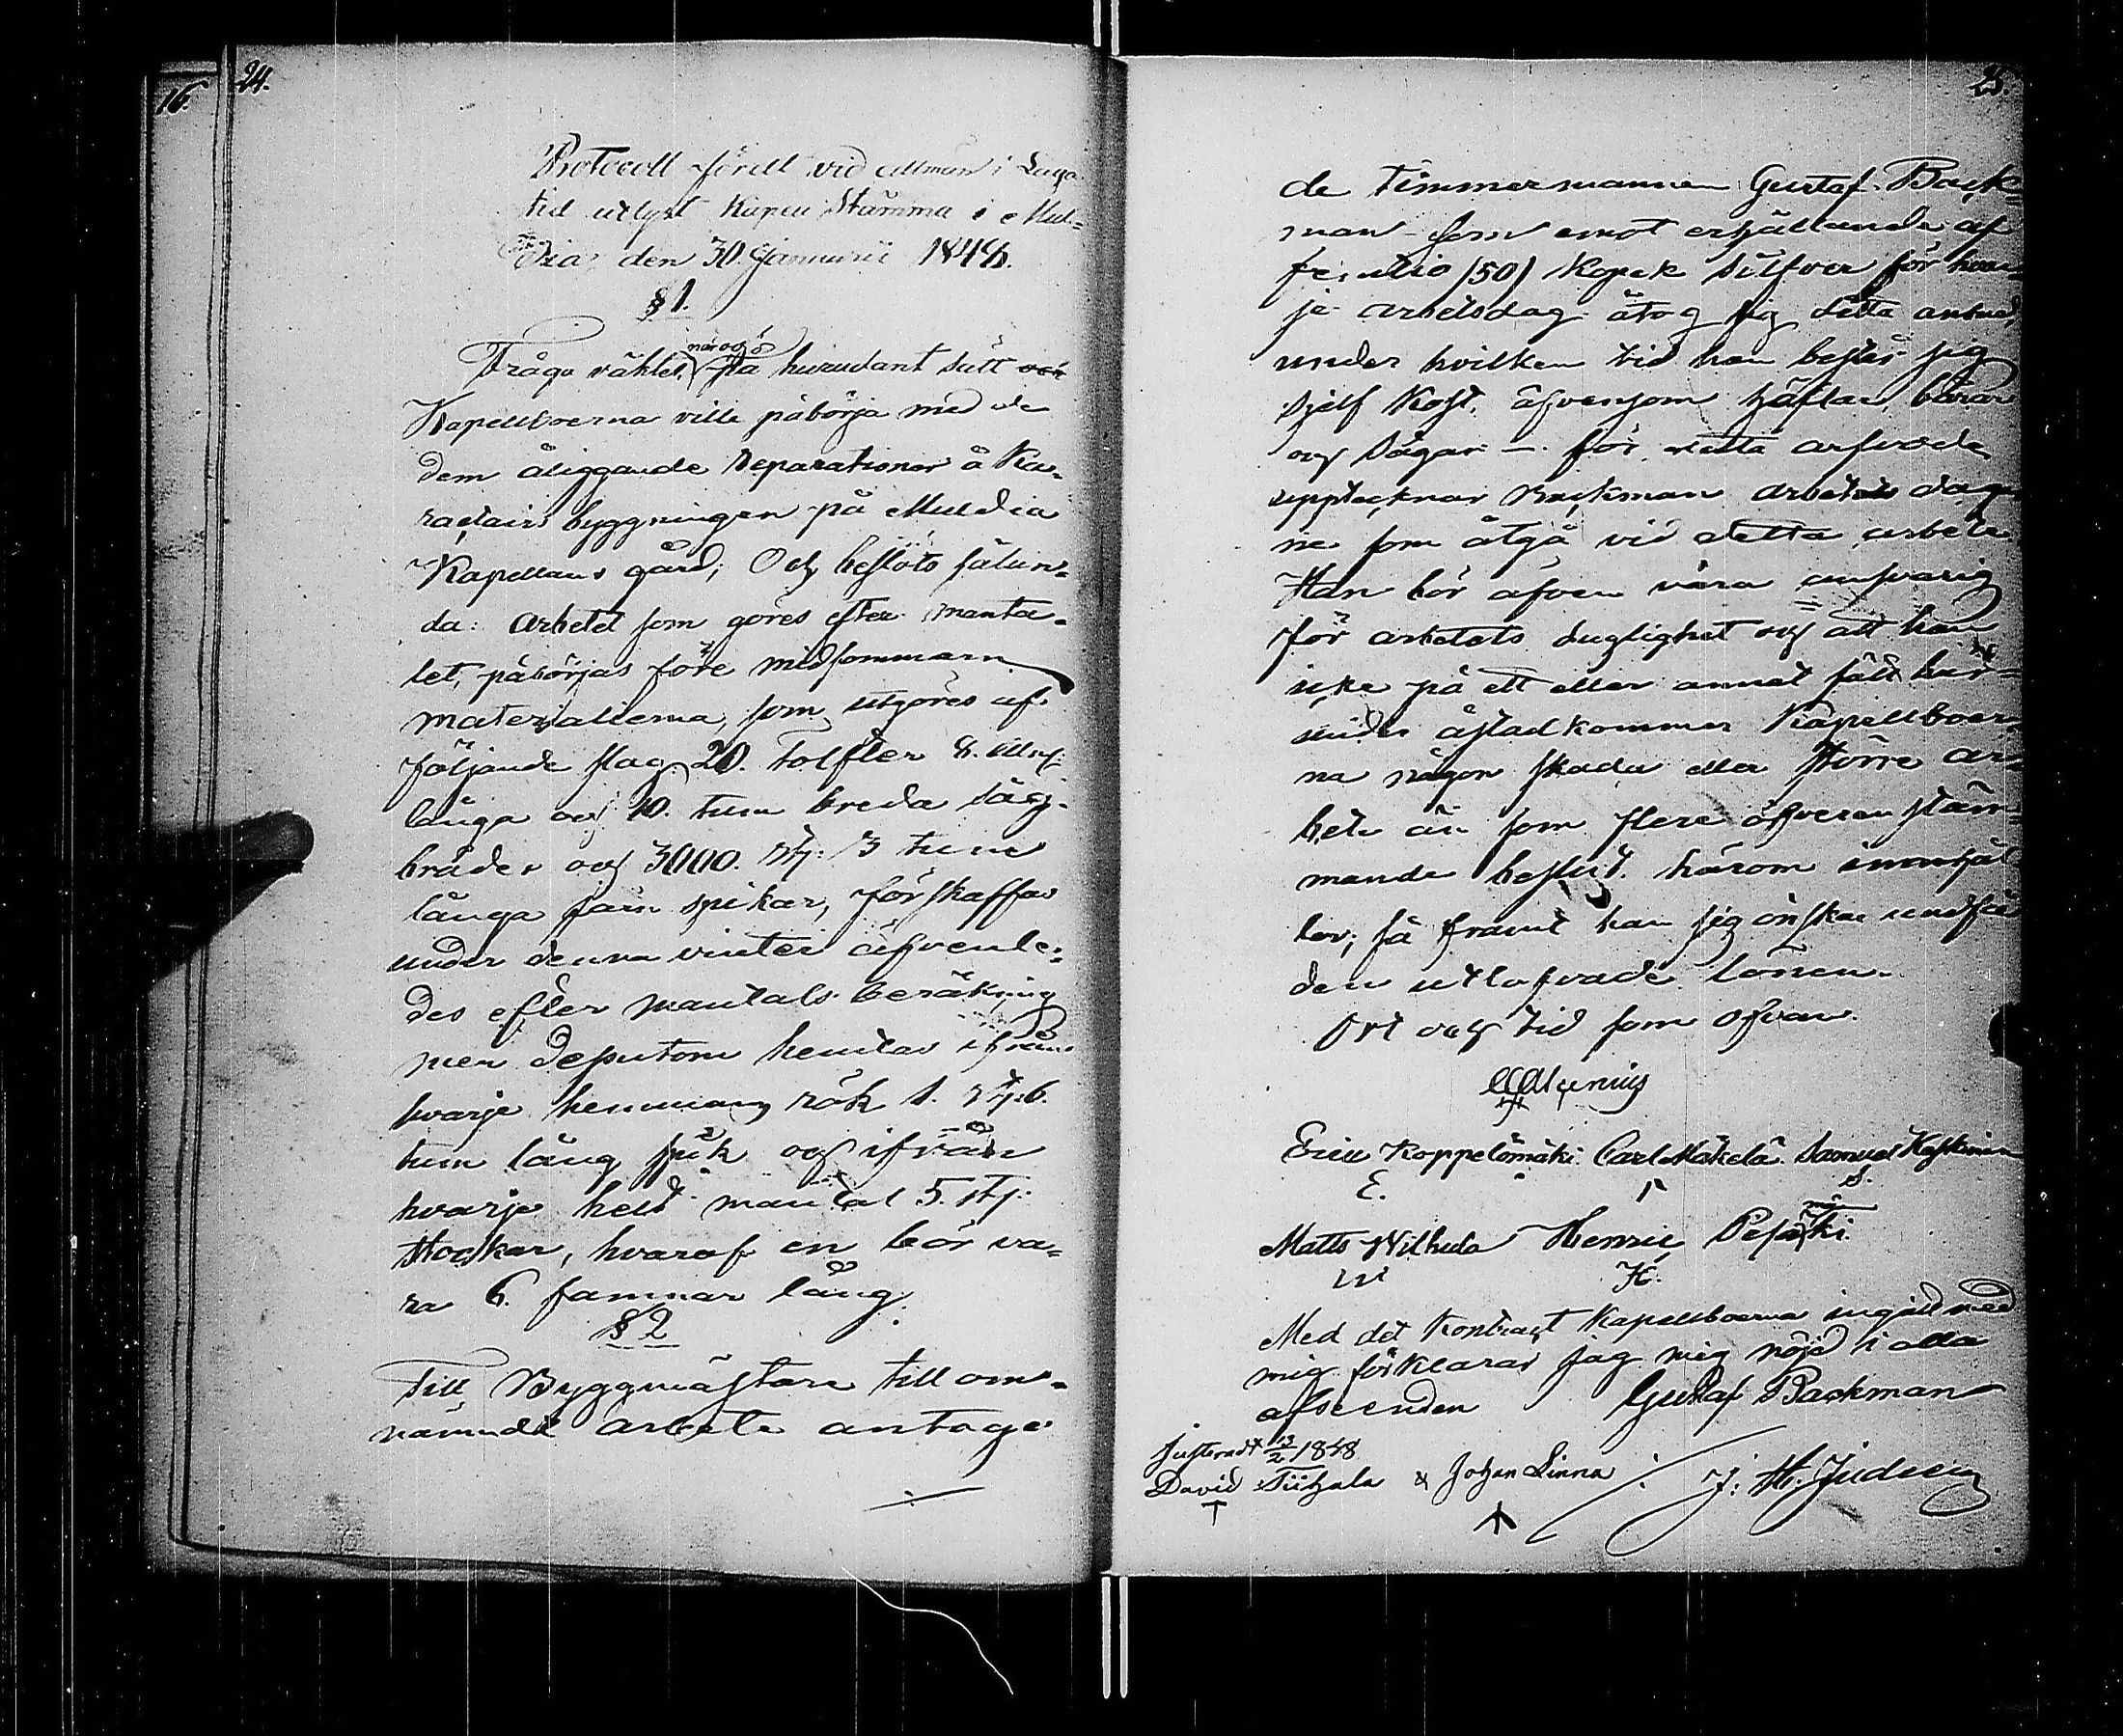 16.
24.
Protocoll fördt vid allmän i Laga
tid utlyst Kapell Stämma i Mul=
dia, den 30. Januarii 1848.
§ 1.
när och
Fråga väktes, på hurudant sätt och
Kapellboerna ville påbörja med de
dem åliggande reparationer å Ka¬
ractairs byggningen på Muldia
Kapellans gård; Och beslöts sålun¬
da: Arbetet som göres efter manta¬
let, påbörjas före midsommarn
materialierna, som utgöres af
följande slag: 20. tolfter 8. aln:
långa och 10. tum breda såg¬
bräder och 3000. st: 3 tum
långa jern spikar, förskaffas
under denna vinter äfvenle¬
des efter mantals beräkning
men dessutom hemtas ifrån
hvarje hemmans rök 1. st: 6.
tum lång spik och ifrån
hvarje helt mantal 5. st:
stockar, hvaraf en bör va¬
ra 6. famnar lång.
§ 2
Till Byggmästare till om¬
nämnde arbete antoge
25.
de timmermannen Gustaf Back¬
man som emot erhållande af
femtio (50) Kopek Silfver för hvar¬
je arbetsdag åtog sig detta
under hvilken tid han består sig
sjelf kost, äfvensom hyflar, bårar
och sågar – för detta arfvode
upptecknar Backman arbets dagar
ne som åtgå vid detta arbete
Han bör äfven vara ansvarig
för arbetets duglighet och att han
icke på ett eller annat sätt här¬
under åstadkommer Kapellboer¬
na någon skada eller större ar¬
bete än som flere öfverenstäm¬
mande beslut härom innehål
ler, så framt han sig önskar undfå
den utlofvade lönen.
Ort och tid som ofvan.
Eric Koppelomäki Carl Mäkelä Samuel Koskinen
E. S.
Matts Wilhula Henric Pesä ki.
W H.
Med det kontract Kapellboerna ingått med
mig förklarar jag mig nöjd i alla
afseenden Gustaf Backman
Justeradt 13/2 1848
David Tiihala & Johan Linna J. H. Judeen
T